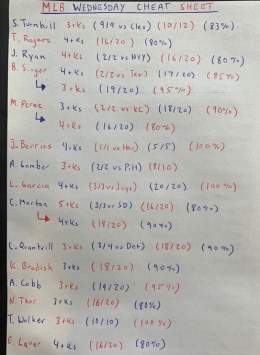 MLB WEDNESDAY CHEAT SHEET
S. Turnbull 3+Ks (9/9 vs Clev) (10/12) (83%)
T. Rogers 4+Ks (16/20) (80%)
J. Ryan 4+Ks (2/2 vs NYY) (16/20) (80%)
B. Singer 4+Ks (2/2 vs Tex) (17/20) (85%)
3+Ks (19/20) (95%)
M. Perez 3+Ks (2/2 vs KC) (18/20) (90%)
4+Ks (16/20) (80%)
J. Berrios 4+Ks (1/1 vs Hou) (5/5) (100%)
A. Gomber 3+Ks (2/2 vs Pitt) (8/10)
L. Garcia 4+Ks (3/3 vs Jays) (20/20) (100%)
C. Morton 5+Ks (3/3 vs SD) (16/20) (80%)
4+Ks (18/20) (90%)
C. Quantrill 3+Ks (3/4 vs Det) (18/20) (90%)
K. Bradish 3+Ks (18/20) (90%)
A. Cobb 3+Ks (19/20) (95%)
N. 3+Ks (16/20) (80%)
T. Walker 3+Ks (10/10) (100%)
E. Lauer 4+Ks (16/20) (80%)